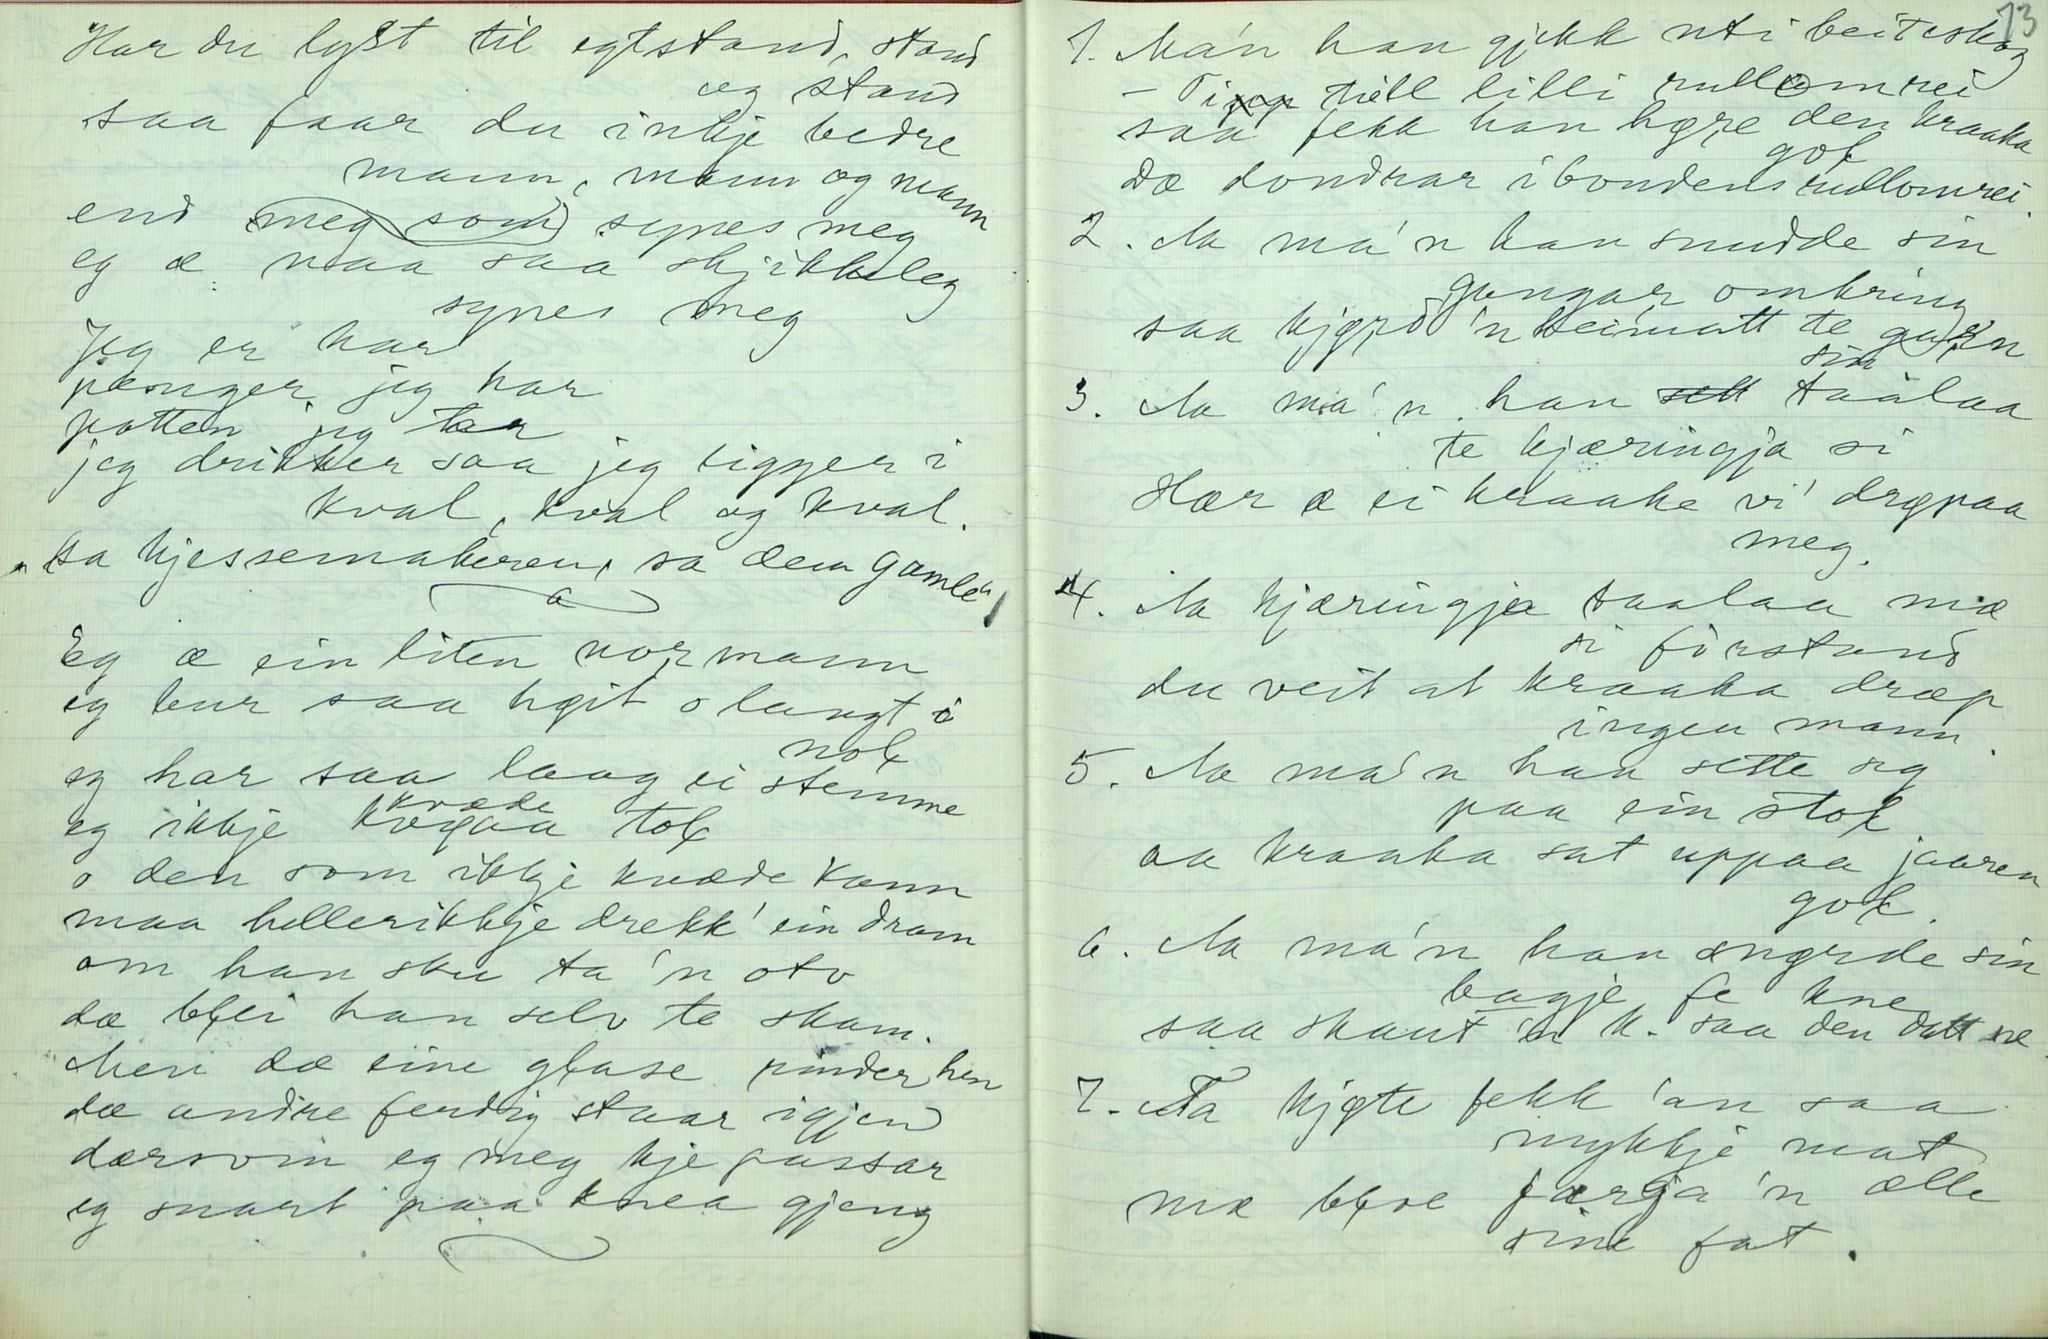 Har du lyst til egtstand, stand
og stand
saa faar du inkje bedre
mann, mann og mann
end meg som synes meg
eg æ naa saa skjikkeleg
synes meg
Jeg er har
pænger jeg har
potten jeg tar
jeg drikker saa jeg ligger i
kval, kval og kval.
"sa kjessemakeren, sa den gamle"
Eg æ ein liten normann
eg bur saa høit o langt i
noł
eg har saa laag ei stemme
kvæde
eg ikkje kvæaa toł
o den som ikkje kvæde kann
maa hellerikkje drekk' ein dram
om han sku ta 'n otv
dæ błei han selv te skam.
Men dæ eine głase pinder hen
dæ andre ferdig staar igjen
dærsom eg meg kje passar
eg snart paa knea gjeng
73
1. Ma'n han gjekk uti beiteskog
- Ti till lilli rullomrei
saa fekk han høre den kraaka
goł
Dæ dondrar i bondens rullomrei.
2. Aa ma'n han snudde sin
gangar omkring
saa kjørd 'n heimatt te garn
sin
3. Aa ma'n han taalaa
te kjæringja si
Hær æ ei kraake vi' drøpaa
meg.
4. Aa kjæringja taalaa mæ
si forstand
du veit at kraaka dræp
ingen mann.
5. Aa ma'n han sette seg
paa ein stoł
aa kraaka sat uppaa jaaren
goł.
6. Aa ma'n han sin
bøgje fe kne
saa skaut 'n k. saa den datt ne.
7. Ta kjøte fekk 'an saa
mykkje mat
mæ błoe farga 'n alle
sine fat.